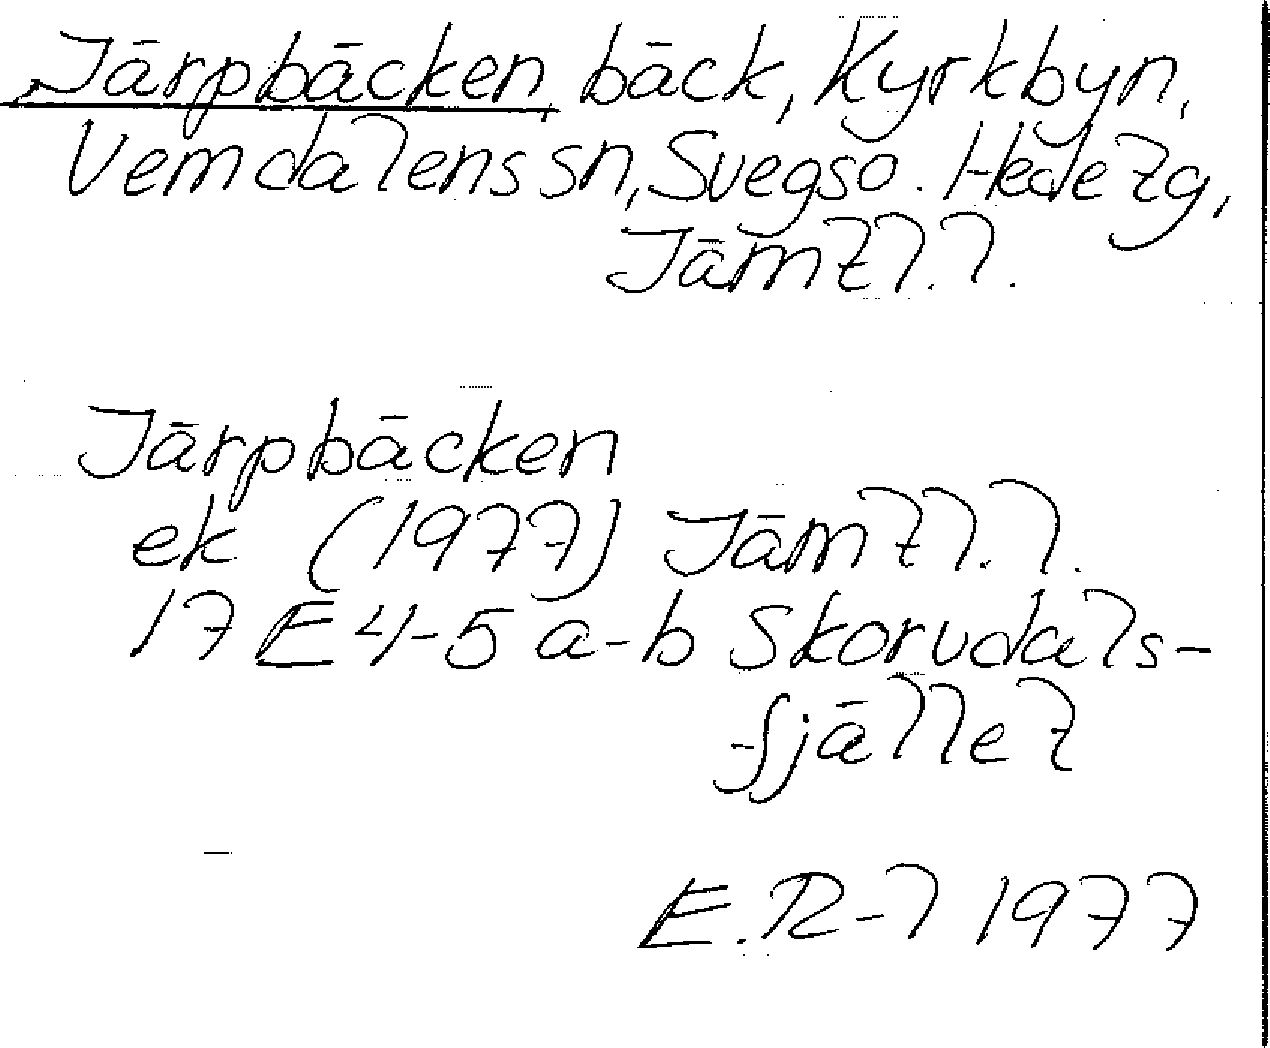 Järpbäcken, bäck, Kyrkbyn,
Vemdalens sn, Svegs o. Hede tg,
Jämtl. l.
Järpbäcken
ek (1977) Jämtl. l.
17 E 4-5 a-b Skorvdals-
fjället
E.R-l 1977